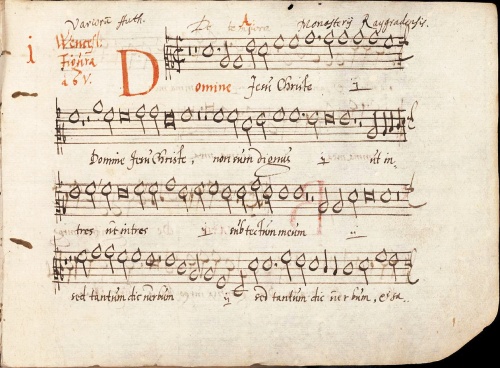 Variorū Auth. De te A Monasterij Raygradensis.
i Wencesl:
Figura
a 6 V.
Domine Jesu Christe ij
Domine Jesu Christe, non sum dignus ij ut in,
tres ut intres ij sub tectum meum ij
sed tantum dic verbum ij sed tantum dic verbum, et sa..